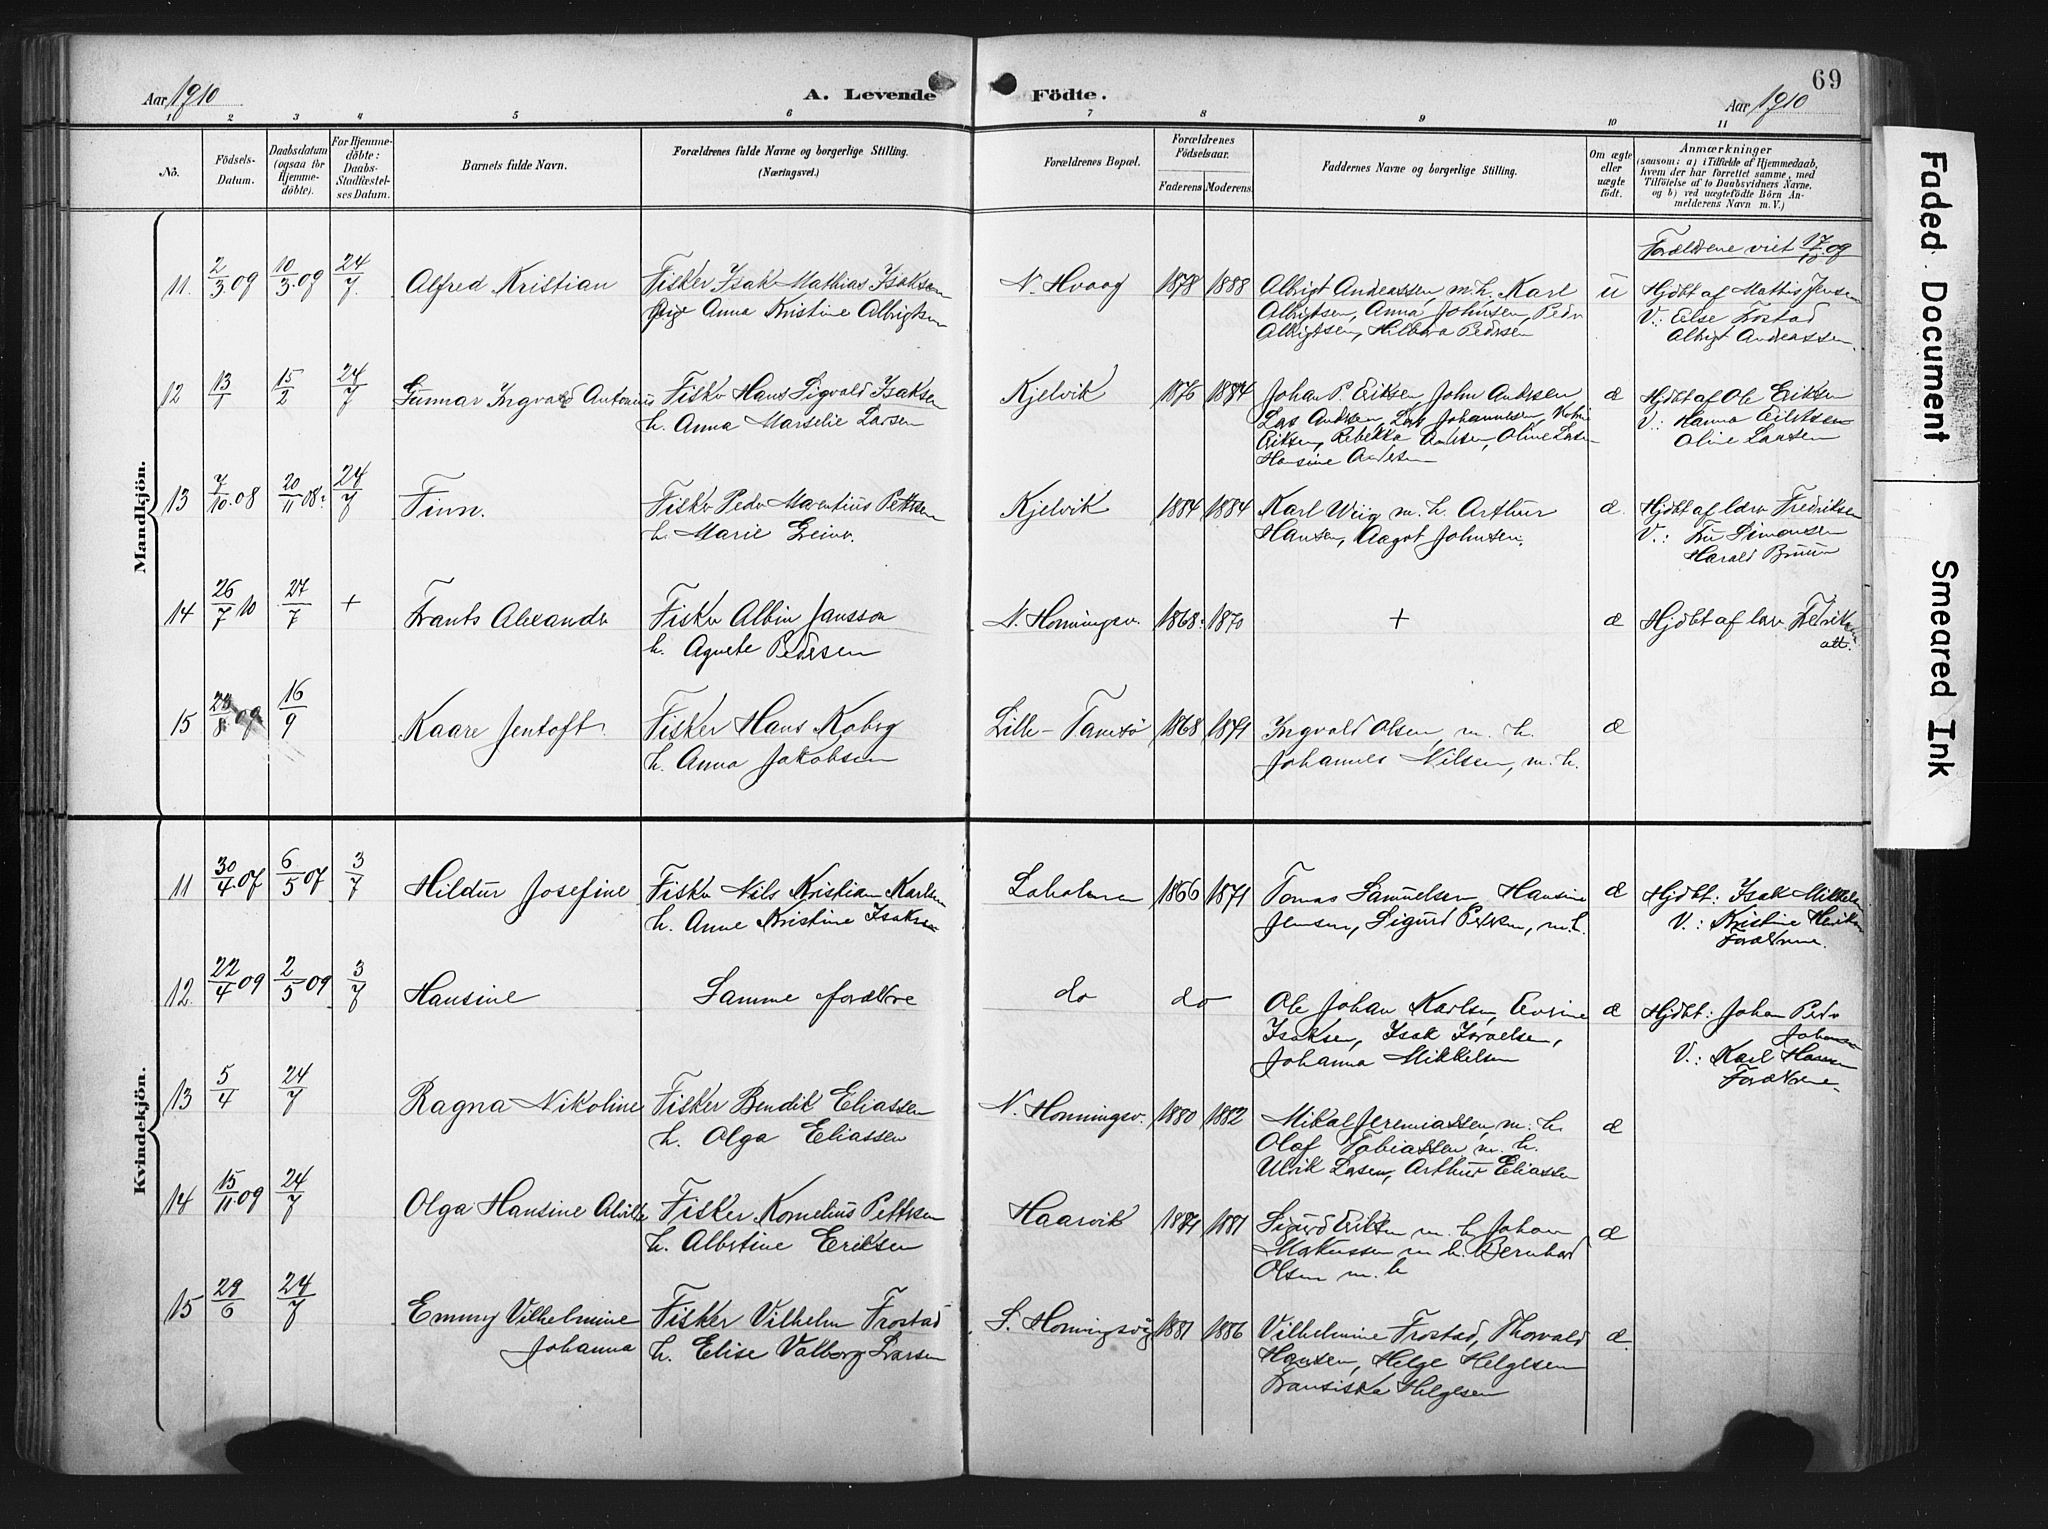 69
Aar 1910
A. Levende Födte.
Aar 1910
1 2 3 4 5 6 7 8 9 10 11
No.
Födsels-Datum.
Daabsdatum (ogsaa for Hjemme-döbte).
For Hjemme-döbte: Daabs-Stadfæstel-ses Datum.
Barnets fulde Navn.
Forældrenes fulde Navne og borgerlige Stilling.
(Næringsvei.)
Forældrenes Bopæl.
Forældrenes Födselsaar.
Faderens Moderens
Faddernes Navne og borgerlige Stilling.
Om ægte eller uægte födt.
Anmærkninger
(saasom: a) i Tilfælde af Hjemmedaab,
hvem der har forrettet samme, med
Tilföielse af to Daabsvidners Navne,
og b) ved uægtefödte Börn An-
melderens Navn m. V.)
Mandkjön.
Forældrene viet 17/10 09
11. 2/3 09 10/3 09 24/7 Alfred Kristian Fisker Isak Mathias Isaksen N. Hvaag 1878 1888 Albrigt Andreassen, m. h. Karl u Hjdbt af Mathis Jensen
pige Anna Kristine Albrigtsen Albrigtsen, Anna Johnsen, Peder V.: Else Frostad
Albrigtsen, Pedersen Albrigt Andreassen.
12 13/1 15/2 24/7 Gunnar Ingvald Antonius Fisker Hans Sigvald Isaksen Kjelvik 1876 1884 Johan P. Eriksen, John Andersen æ Hjdbt af Ole Eriksen
h. Anna Marselie Larsen Lars Andersen, Lars Johannesen, V.: Hanna
Eriksen, Rebekka Andersen, Oline Larsen Oline Larsen
Hansine Andersen
13 7/10 08 20/11 08 24/7 Finn. Fisker Peder Marentius Pettersen Kjelvik 1884 1884 Karl Wiig m. h. Arthur æ. Hjdbt af lærer Fredriksen
h. Marie Greiner. Hansen, Aagot Johnsen. V.: Fru Simonsen
Harald Bruun
14 26/7 10 27/7 + Frants Alexander Fisker Albin Jansson N. Honningsv. 1868 1870 + æ Hjdbt af lær. Fredriksen
h. Agnete Pedersen att.
15 23/8 09 16/9 Kaare Jentoft Fisker Hans Koberg Lille-Tamsø 1868 1871 Ingvald Olsen m. h. æ
h. Anna Jakobsen Johannes Nilsen, m. h.
Kvindekjön.
11 30/4 07 6/5 07 3/7 Hildur Josefine Fisker Nils Kristian Karlsen Laholmen 1866 1871 Tomas Samuelsen, Hansine æ Hjdbt: Isak Mikkelsen
h. Anne Kristine Isaksen Jensen, Sigurd Pedersen, m. h. V.: Kristine Henriksen
Forældrene.
12 22/4 09 2/5 09 3/7 Hansine Samme forældre do do Ole Johan Karlsen, æ Hjdbt: Johan Peder
Isaksen, Isak Israelsen, Johansen
Johanna Mikkelsen V.: Karl Hansen
Forældrene
13 5/4 24/7 Ragna Nikoline Fisker Bendik Eliassen N. Honningsv. 1880 1882 Mikal Jeremiassen, m. h. æ
h. Olga Eliassen Olaf Tobiassen m. h.
Ulrik Larsen, Arthur Eliassen
14 15/11 09 24/7 Olga Hansine Alvilde Fisker Kornelius Pettersen Haarvik 1881 Sigurd Eriksen m. h. Johan æ
h. Albertine Eriksen Markussen m. h. Bernhard
Olsen m. h.
15 28/6 24/7 Emmy Vilhelmine Fisker Vilhelm Frostad S. Honningsvåg 1881 1886 Vilhelmine Frostad, Thorvald æ.
Johanna h. Elise Valborg Larsen Hansen, Helge Helgesen
Fransiska Helgesen
Faded Document
Smeared Ink